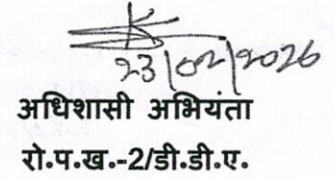 23/02/2026
अधिशासी अभियंता
रो.प.ख.-2/डी.डी.ए.